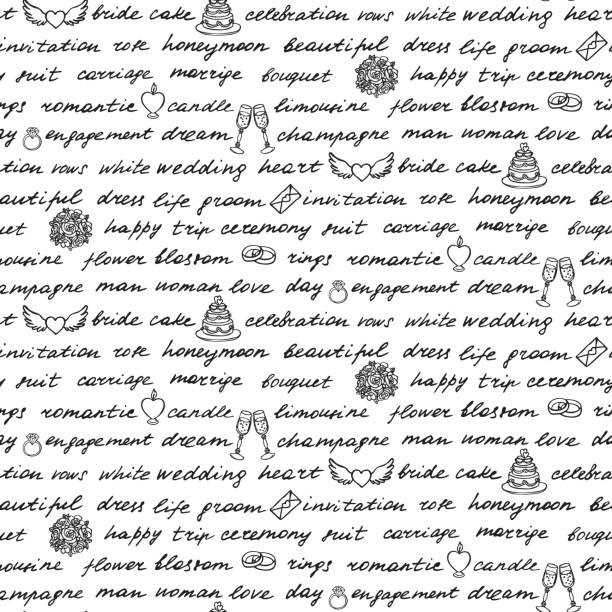 t bride cake celebration vows white wedding heart
invitation rose honeymoon beautiful dress life groom
y suit carriage marrige bouquet happy trip ceremony
ngs romantic candle limousine flower blossom ri
ay engagement dream champagne man woman love d
ation vows white wedding heart bride cake celebra
eautiful dress life groom invitation rose honeymoon beau
uet happy trip ceremony suit carriage marrige bouqu
mousine flower blossom rings romantic candle lim
ampagne man woman love day engagement dream ch
t bride cake celebration vows white wedding heart
invitation rose honeymoon beautiful dress life groom
y suit carriage marrige bouquet happy trip ceremony
ngs romantic candle limousine flower blossom ri
ay engagement dream champagne man woman love da
ation vows white wedding heart bride cake celebra
eautiful dress life groom invitation rose honeymoon beau
uet happy trip ceremony suit carriage marrige bouqu
ousine flower blossom rings romantic candle lim
ampagne man woman love day engagement dream ch